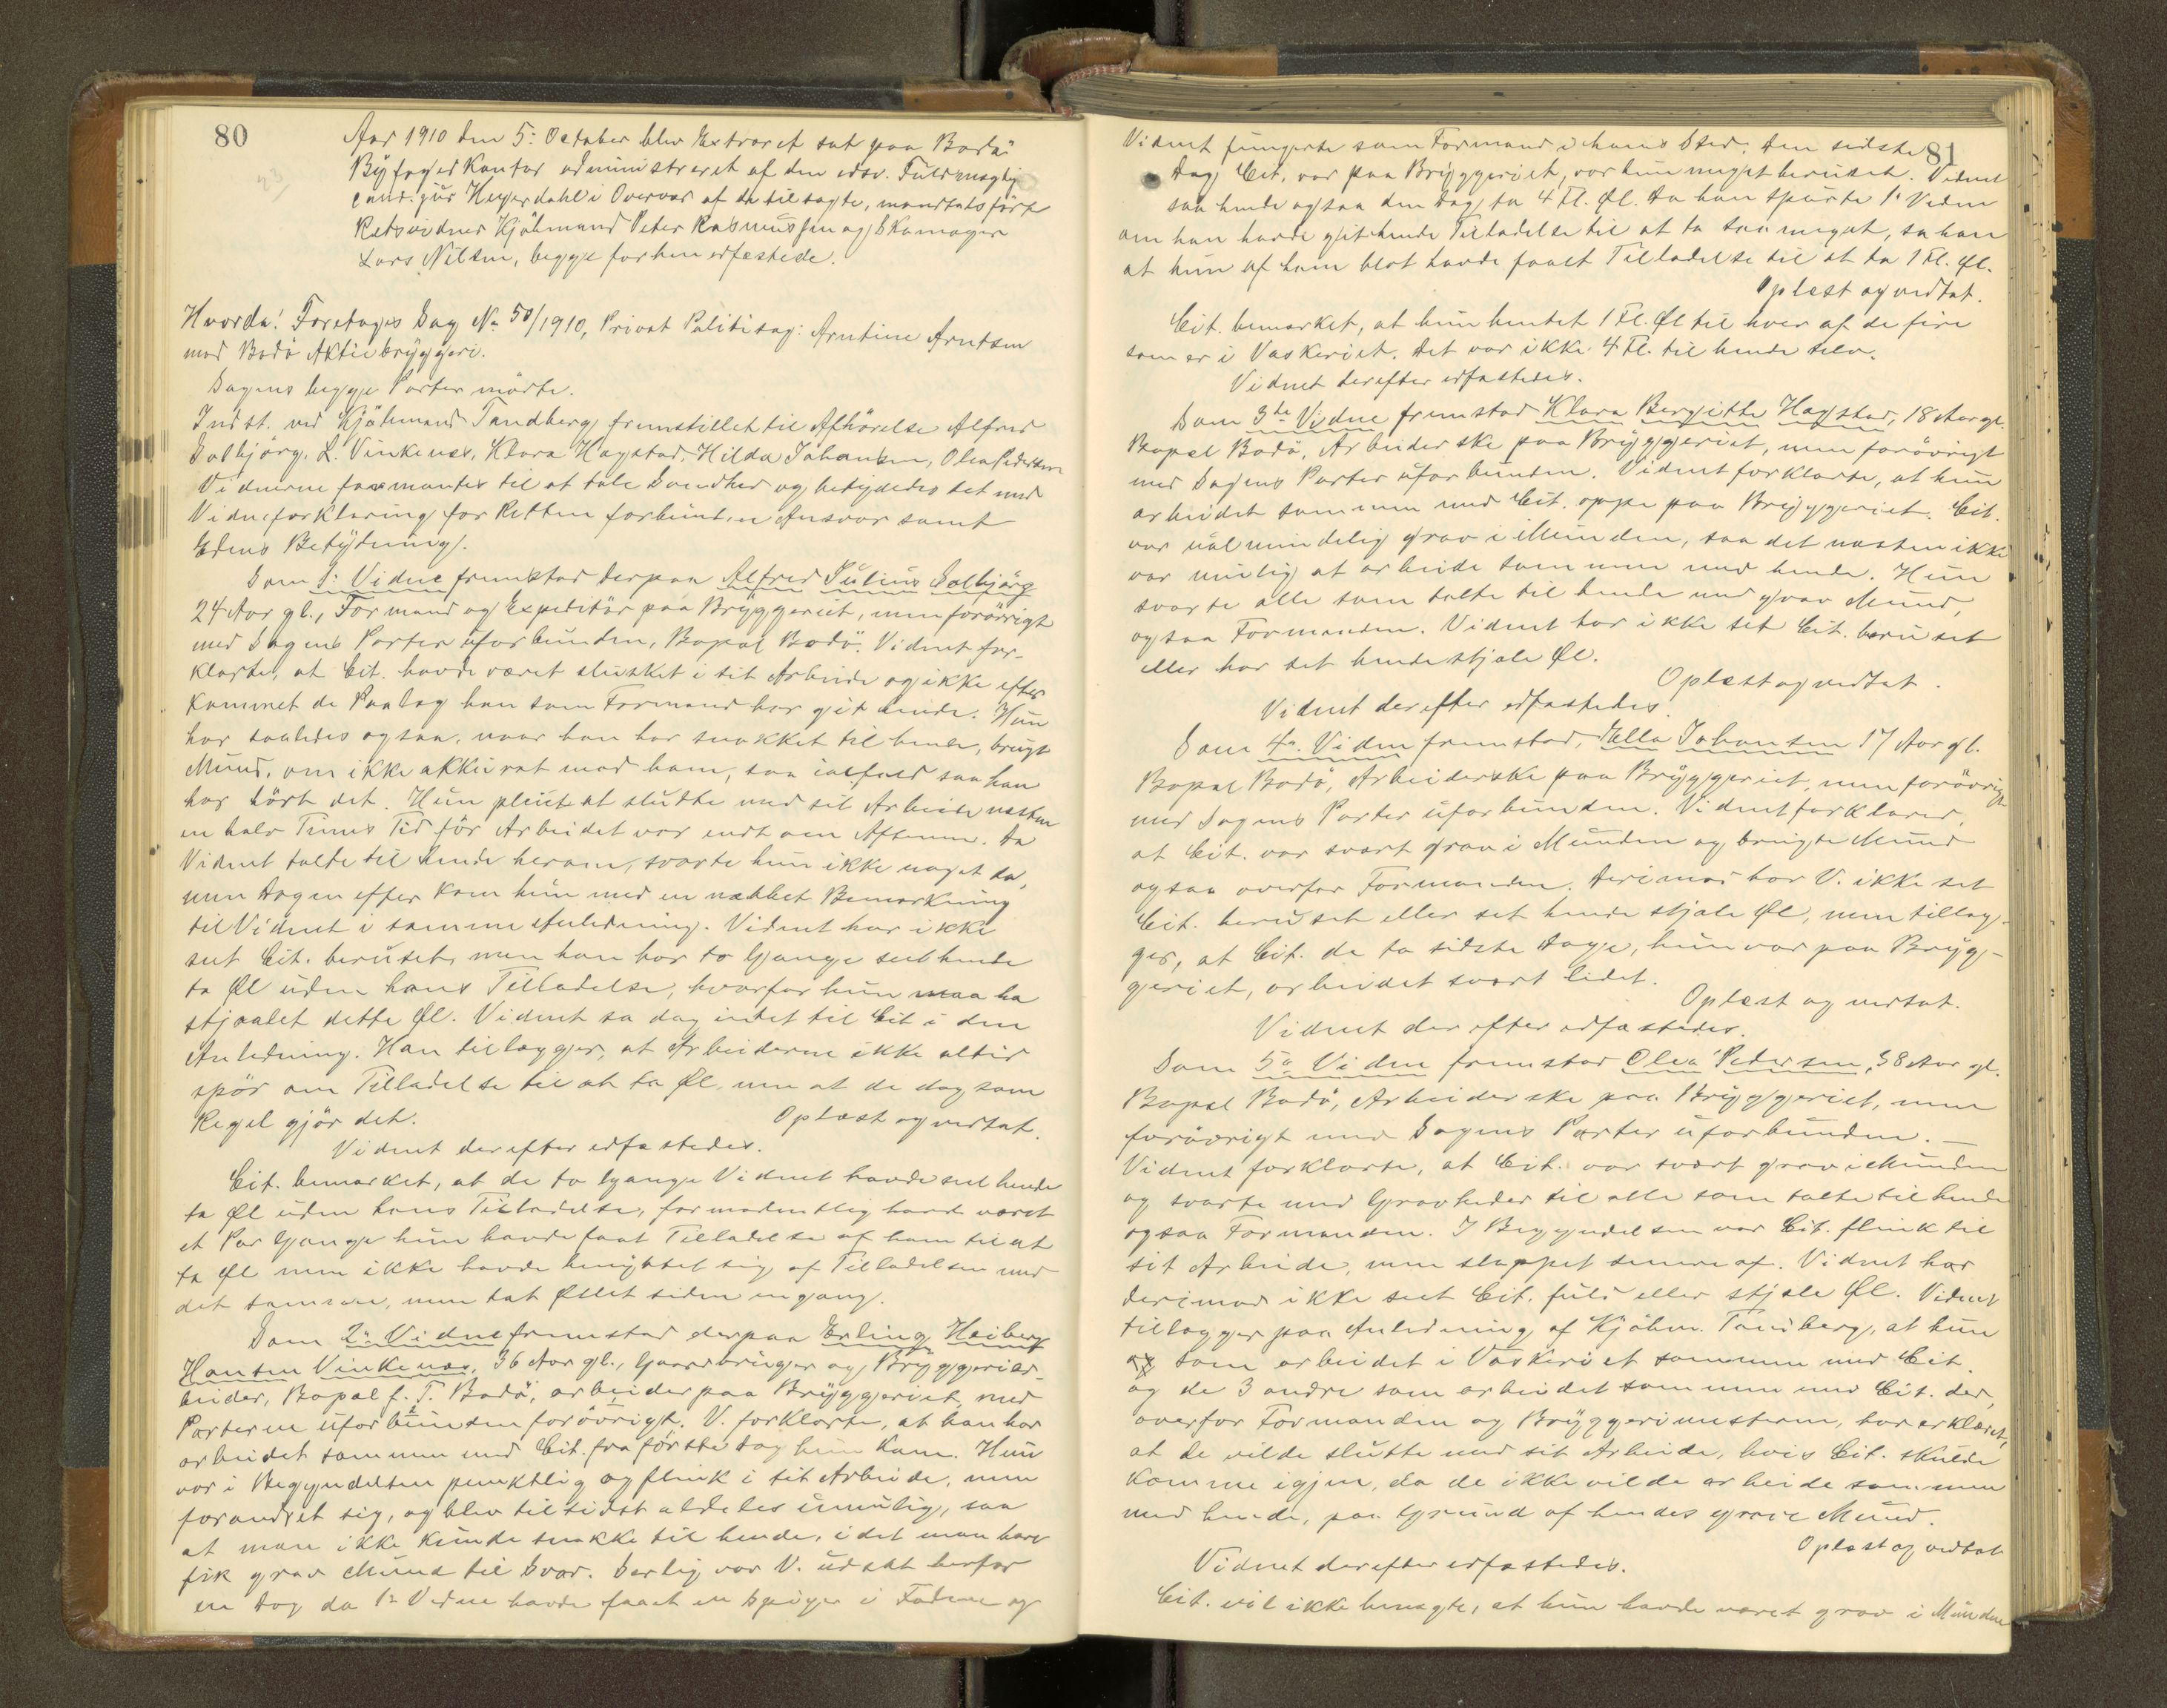 80
Aar 1910 den 5: October blev Extraret sat paa Bodø
Byfogedkontor administreret af den edsv. Fuldmægtig
cand. jur Heyerdahl i Overvær af de tilsagte, mandtalsførte
Retsvidner Kjøbmand Peter Rasmussen og Skomager
Lars Nilsen, begge forhen edfæstede.
Hvorda! Foretoges Sag No 50/1910, Privat Politisag: Arntine Arntsen
mod Bodø Aktiebryggeri.
Sagens begge Parter mødte.
Indst. ved Kjøbmand Tandberg fremstillet til Afhørelse Alfred
Solbjørg, L. Vinkenes, Klara Hagstad, Hilda Johansen, Olea Pedersen
Vidnerne formantes til at tale Sandhed og betydedes det med
Vidneforklaring for Retten forbundne Ansvar samt
Edens Betydning.
Som 1: Vidne fremstod derpaa Alfred Julius Solbjørg
24 Aar gl., Formand og Expeditør paa Bryggeriet, men forøvrigt
med Sagens Parter uforbunden, Bopæl Bodø. Vidnet for-
klarte, at Cit. havde været slusket i sit Arbeide og ikke efter
kommet de Paalæg han som Formand har git hende. Hun
har saaledes ogsaa, naar han har snakket til hende, brugt
Mund, om ikke akkurat mod ham, saa ialfald saa han
har hørt det. Hun pleiet at slutte med sit Arbeide næsten
en halv Times Tid før Arbeidet var endt om Aftenen. Da
Vidnet talte til hende herom, svarte hun ikke noget da,
men Dagen efter kom hun med en næbbet Bemærkning
til Vidnet i samme Anledning. Vidnet har ikke
seet Cit. beruset, men han har to Gange seet hende
ta Øl uden hans Tilladelse, hvorfor hun maa ha
stjaalet dette Øl. Vidnet sa dog intet til Cit i den
Anledning. Han tillægger, at Arbeiderne ikke altid
spør om Tilladelse til at ta Øl, men at de dog som
Regel gjør det. Oplæst og vedtat.
Vidnet derefter edfæstedes.
Cit. bemærket, at de to Gange Vidnet havde seet hende
ta Øl uden hans Tilladelse, formodentlig havde været
et Par Gange hun havde faat Tilladelse af ham til at
ta Øl men ikke havde benyttet sig af Tilladelsen med
det samme, men tat Øllet siden engang.
Som 2: Vidne fremstod derpaa Erling Heiberg
Hansen Vinkenes, 36 Aar gl., Gaardbruger og Bryggeriar-
beider, Bopæl f. T. Bodø, arbeider paa Bryggeriet, med
Parterne uforbunden forøvrigt. V. forklarte, at han har
arbeidet sammen med Cit. fra første Dag hun kom. Hun
var i Begyndelsen punktlig og flink i sit Arbeide, men
forandret sig, og blev tilsidst aldeles umulig, saa
at man ikke kunde snakke til hende, idet man bare
fik grov Mund til Svar. Særlig var V. udsat herfor
en Dag da 1: Vidne havde faaet en Spiger i Foden og
81
Vidnet fungerte som Formand i hans Sted. Den sidste
Dag Cit. var paa Bryggeriet, var hun meget beruset. Vidnet
saa hende ogsaa den Dag ta 4 Fl. Øl. Da han spurte 1: Vidne
om han havde git hende Tilladelse til at ta saa meget, sa han
at hun af ham blot havde faaet Tilladelse til at ta 1 Fl. Øl.
Oplæst og vedtat.
Cit. bemærket, at hun hentet 1 Fl. Øl til hver af de fire
som er i Vaskeriet. Det var ikke 4 Fl. til hende selv.
Vidnet derefter edfæstedes.
Som 3die Vidne fremstod Klara Bergitte Hagstad, 18 Aar gl.
Bopæl Bodø, Arbeiderske paa Bryggeriet, men forøvrigt
med Sagens Parter uforbunden. Vidnet forklarte, at hun
arbeidet sammen med Cit. oppe paa Bryggeriet. Cit.
var ualmindelig grov i Munden, saa det næsten ikke
var mulig at arbeide sammen med hende. Hun
svarte alle som talte til hende med grov Mund,
ogsaa Formanden. Vidnet har ikke set Cit. beruset
eller har set hende stjæle Øl.
Oplæst og vedtat.
Vidnet derefter edfæstedes.
Som 4: Vidne fremstod, Hilda Johansen 17 Aar gl.
Bopæl Bodø, Arbeiderske paa Bryggeriet, men forøvrigt
med Sagens Parter uforbunden. Vidnet forklarer,
at Cit. var svært grov i Munden og brugte Mund
ogsaa overfor Formanden. Derimod har V. ikke set
Cit. beruset eller set hende stjæle Øl, men tillæg-
ger, at Cit. de to sidste Dage, hun var paa Bryg-
geriet, arbeidet svært lidet.
Oplæst og vedtat.
Vidnet derefter edfæstedes.
Som 5: Vidne fremstod Olea Pedersen, 38 Aar gl.
Bopæl Bodø, Arbeiderske paa Bryggeriet, men
forøvrigt med Sagens Parter uforbunden. —
Vidnet forklarte, at Cit. var svært grov i Munden
og svarte med Grovheder til alle som talte til hende
ogsaa Formanden. I Begyndelsen var Cit. flink til
sit Arbeide, men slappet senere af. Vidnet har
derimod ikke seet Cit. fuld eller stjæle Øl. Vidnet
tillægger paa Anledning af Kjøbm. Tandberg, at hun
som arbeidet i Vaskeriet sammen med Cit.
og de 3 andre som arbeidet sammen med Cit. der,
overfor Formanden og Bryggerimesteren, har erklæret,
at de vilde slutte med sit Arbeide, hvis Cit. skulde
komme igjen, da de ikke vilde arbeide sammen
med hende, paa Grund af hendes grove Mund.
Oplæst og vedtat
Vidnet derefter edfæstedes.
Cit. vil ikke benægte, at hun havde været grov i Munden